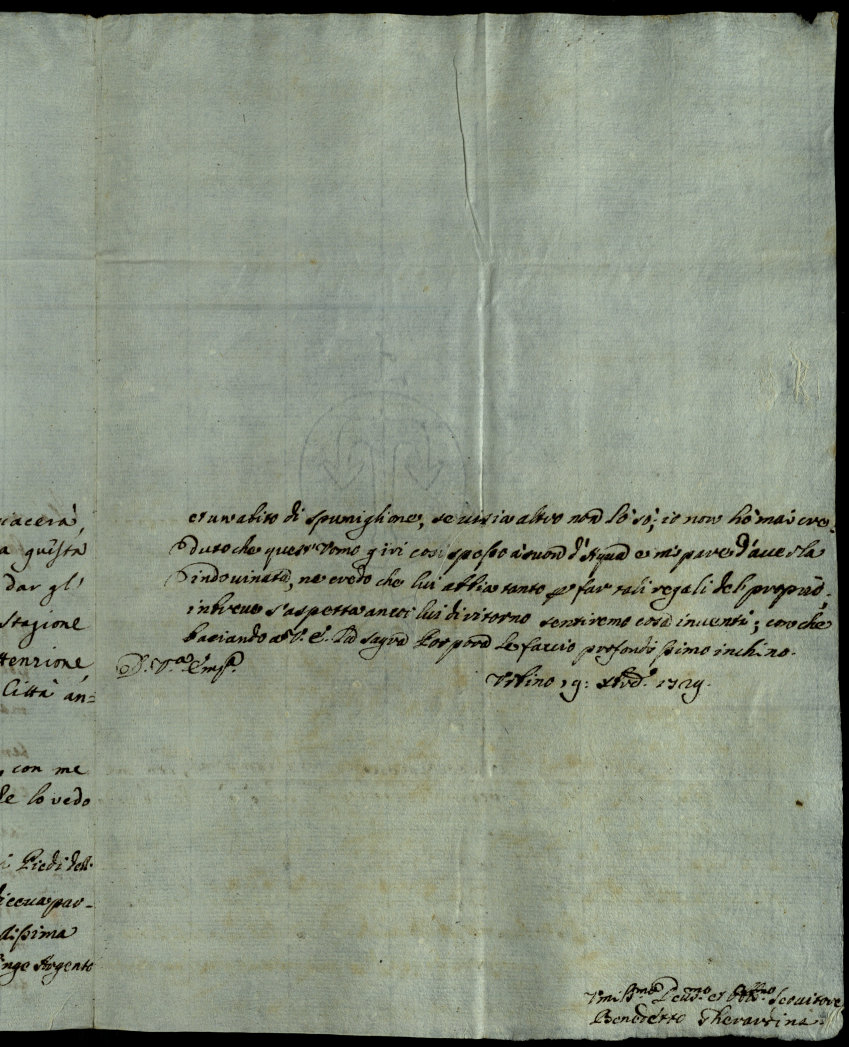 iacerà,
a guista
dar gl'
Stagione
ttenzione
Città an=
con me
le lo vedo
i Piedi dell'
diceua par-
dissima
Argento
et un abito di spumiglione, se ui sia altro non lo sò; io non hò mai cre-
duto che quest'Vomo giri così spesso à suon d'Aqua e mi pare d'auerla
indouinata, ne credo che lui abbia tanto per far tali regali del proprio.
in breue s'aspetta anco lui di ritorno sentiremo cosa inuenti; con che
baciando a V. E. la sagra Porpora le faccio profondissimo inchino.
D. V.ra Em.za
Vrbino 19: 1729.
Vmil.mo Deu.mo et Obb.mo Seruitore
Benedetto Gherardina